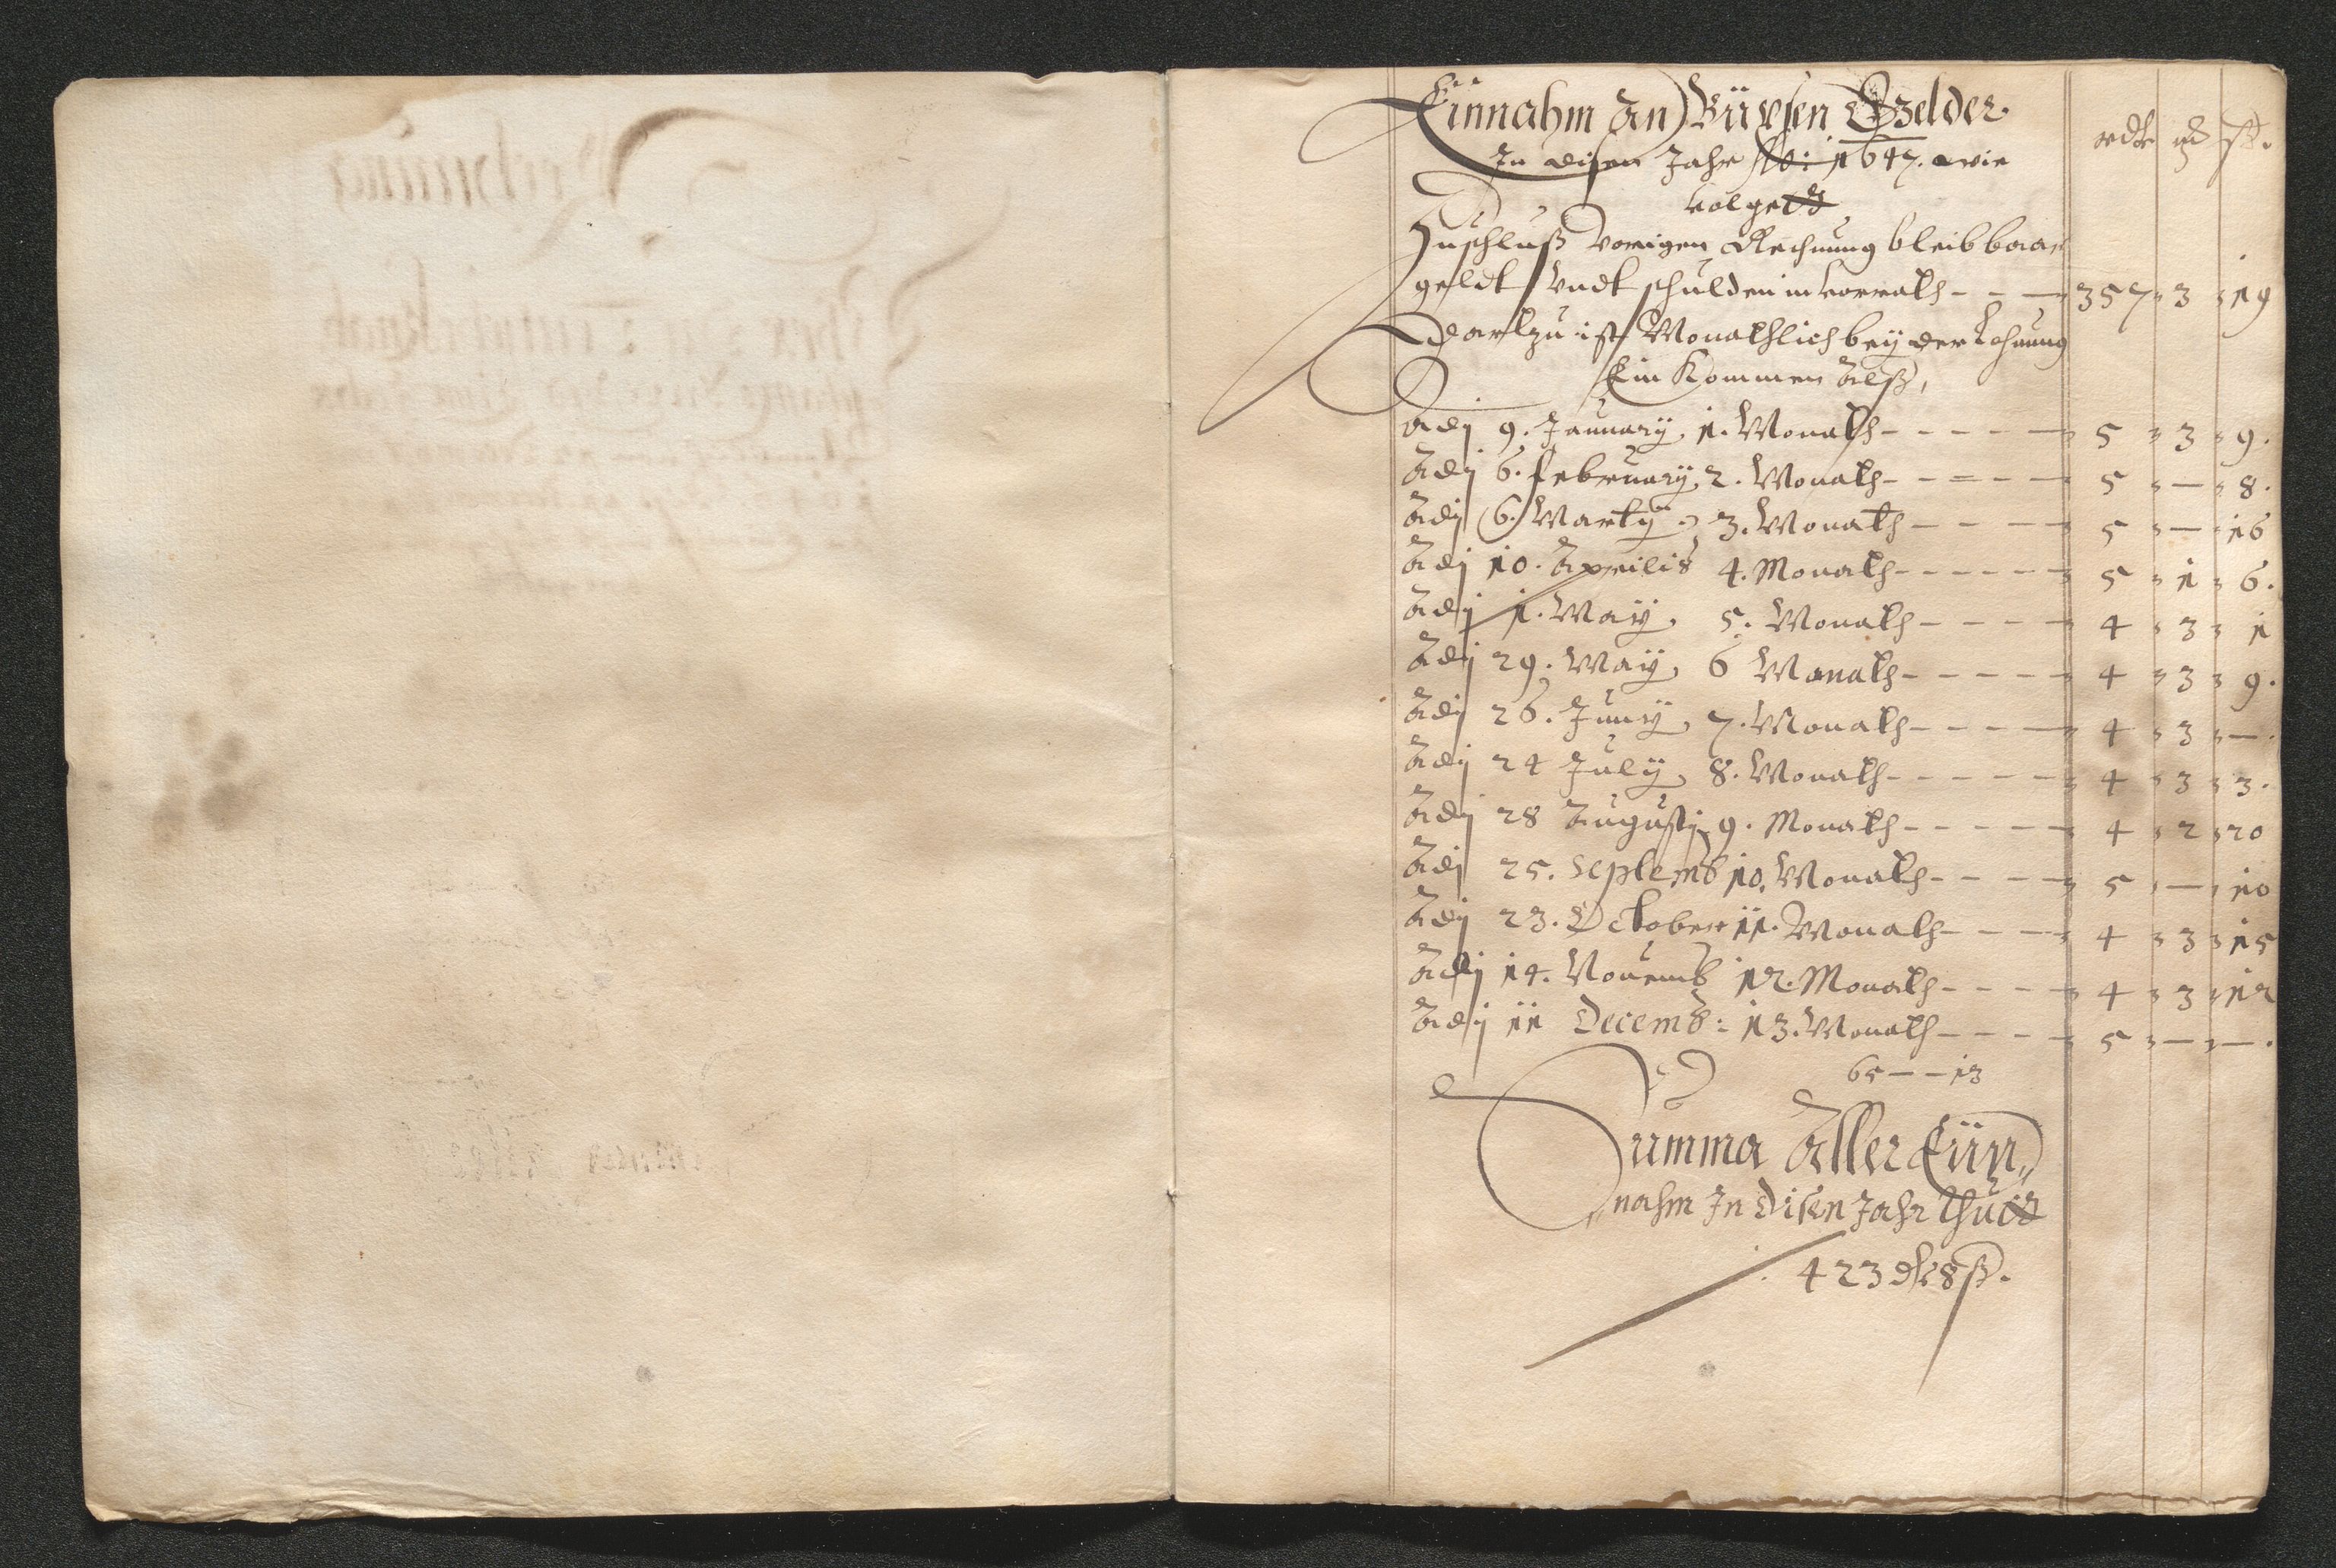 Einnahm An Büxsen Gzelder.
In disen Jahr Ao: 1647. wie
volgedt
rdt ord ß.
Zuschluß vorigen Rechnung bleib baar
geldt Undt schulden in vorrath - - - 357 3 19
dartzu ist Monathlich bey der Lohnung
Ein Kommen Alß,
adj 9. January, 1. Monath - - - - - 5 3 9.
Adj 6. February, 2. Monath - - - - - 5 — 8.
Adj 6. Marty, 3. Monath - - - - 5 — 16
Adj 10. Aprilis 4. Monath - - - - - 5 1 6.
Adj 1. May, 5. Monath - - - - 4 3 1
Adj 29. May, 6 Monath - - - - - 4 3 9.
Adj 26. Juny, 7. Monath - - - - 4 3 —.
Adj 24 July, 8. Monath - - - - - 4 3 3.
Adj 28 Augusti, 9. Monath - - - - - 4 2 20
Adj 25. Septemb 10. Monath - - - - 5 — 10
Adj 23. October 11. Monath - - - - 4 3 15
Adj 14. Novemb 12. Monath - - - - 4 3 12
Adj 11 Decemb: 13. Monath - - - - 5 — —.
65 — — 13
Summa Aller Ein,,
nahm In Disen Jahr thudt
423 8 ß.